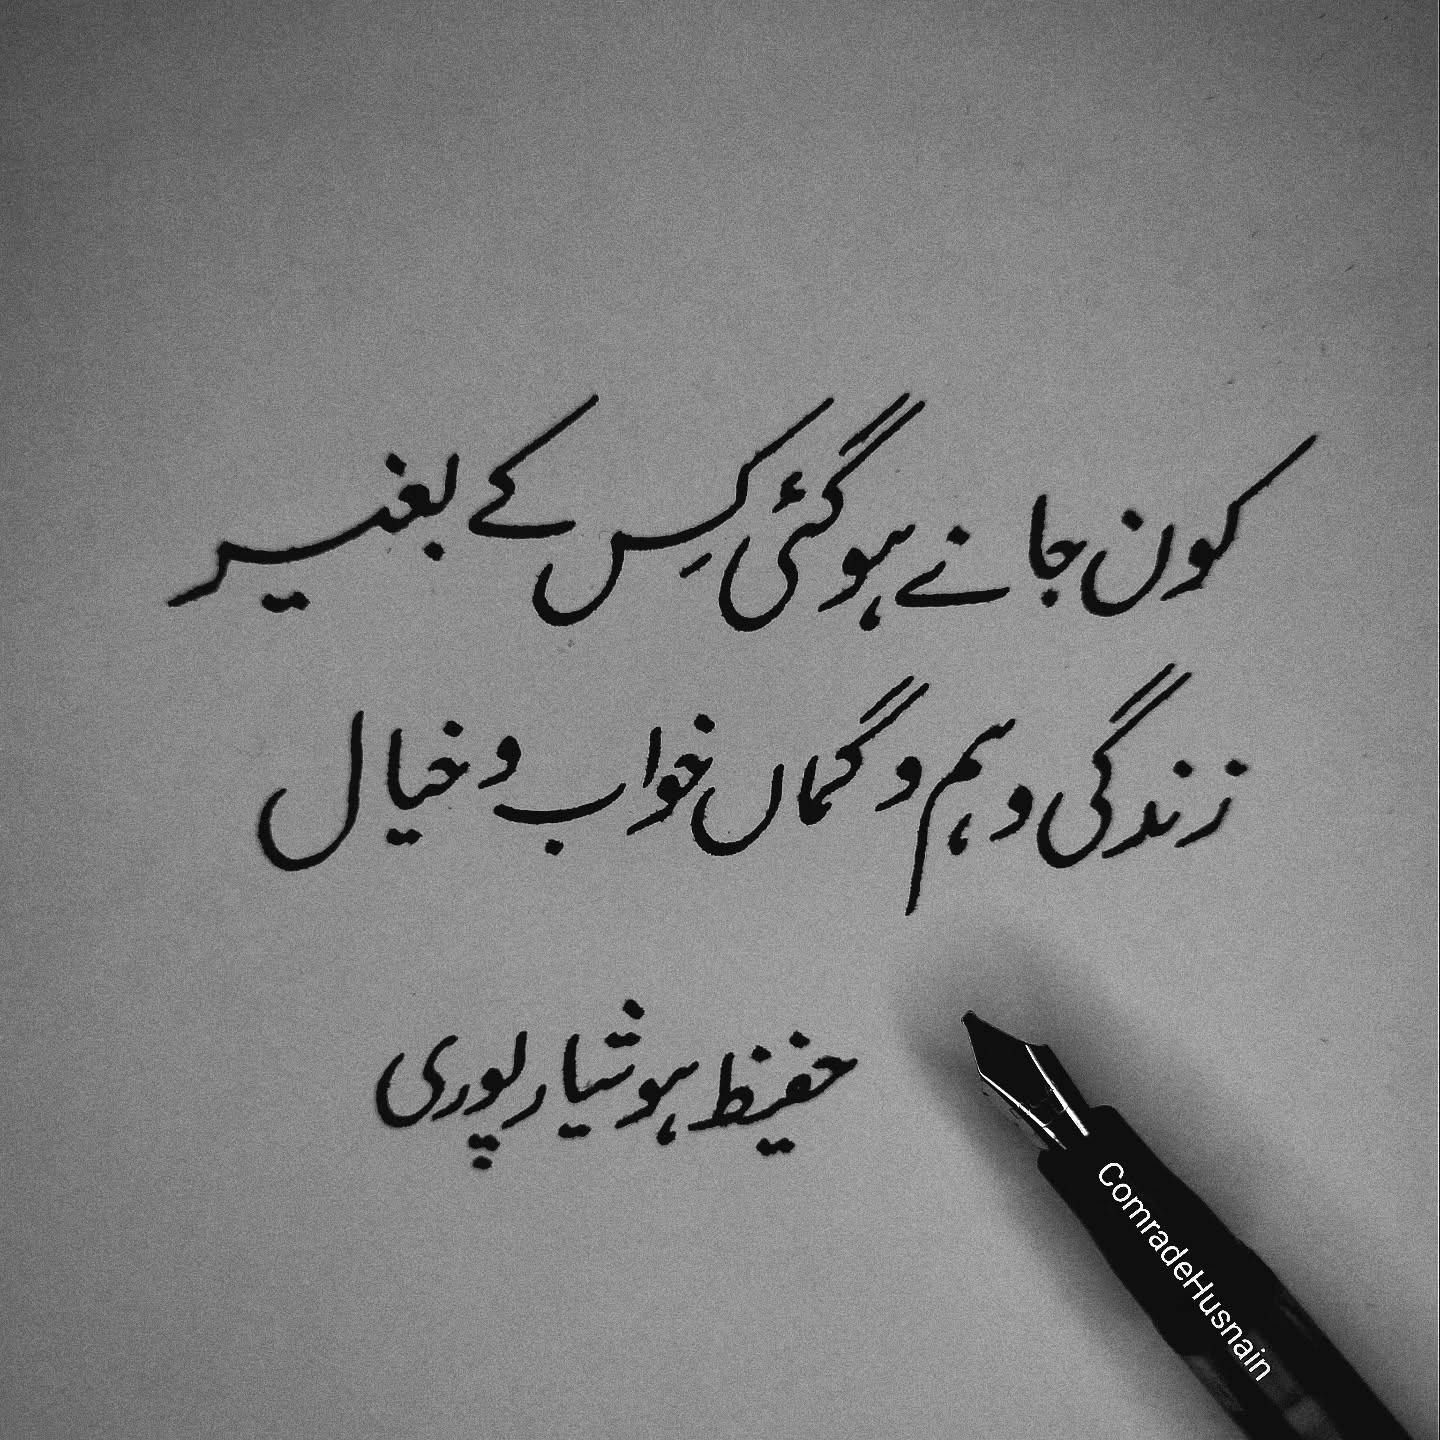 کون جانے ہو گئی کِس کے بغیر
زندگی وہم و گماں خواب و خیال
حفیظ ہوشیارپوری
ComradeHusnain